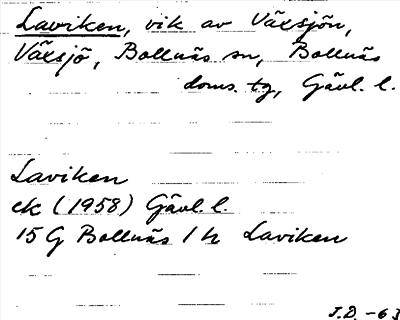 Laviken, vik av Växsjön,
Växsjö, Bollnäs sn, Bollnäs
doms. tg, Gävl. l.
Laviken
ek (1958) Gävl. l.
15 G Bollnäs 1 h Laviken
J.D. -63